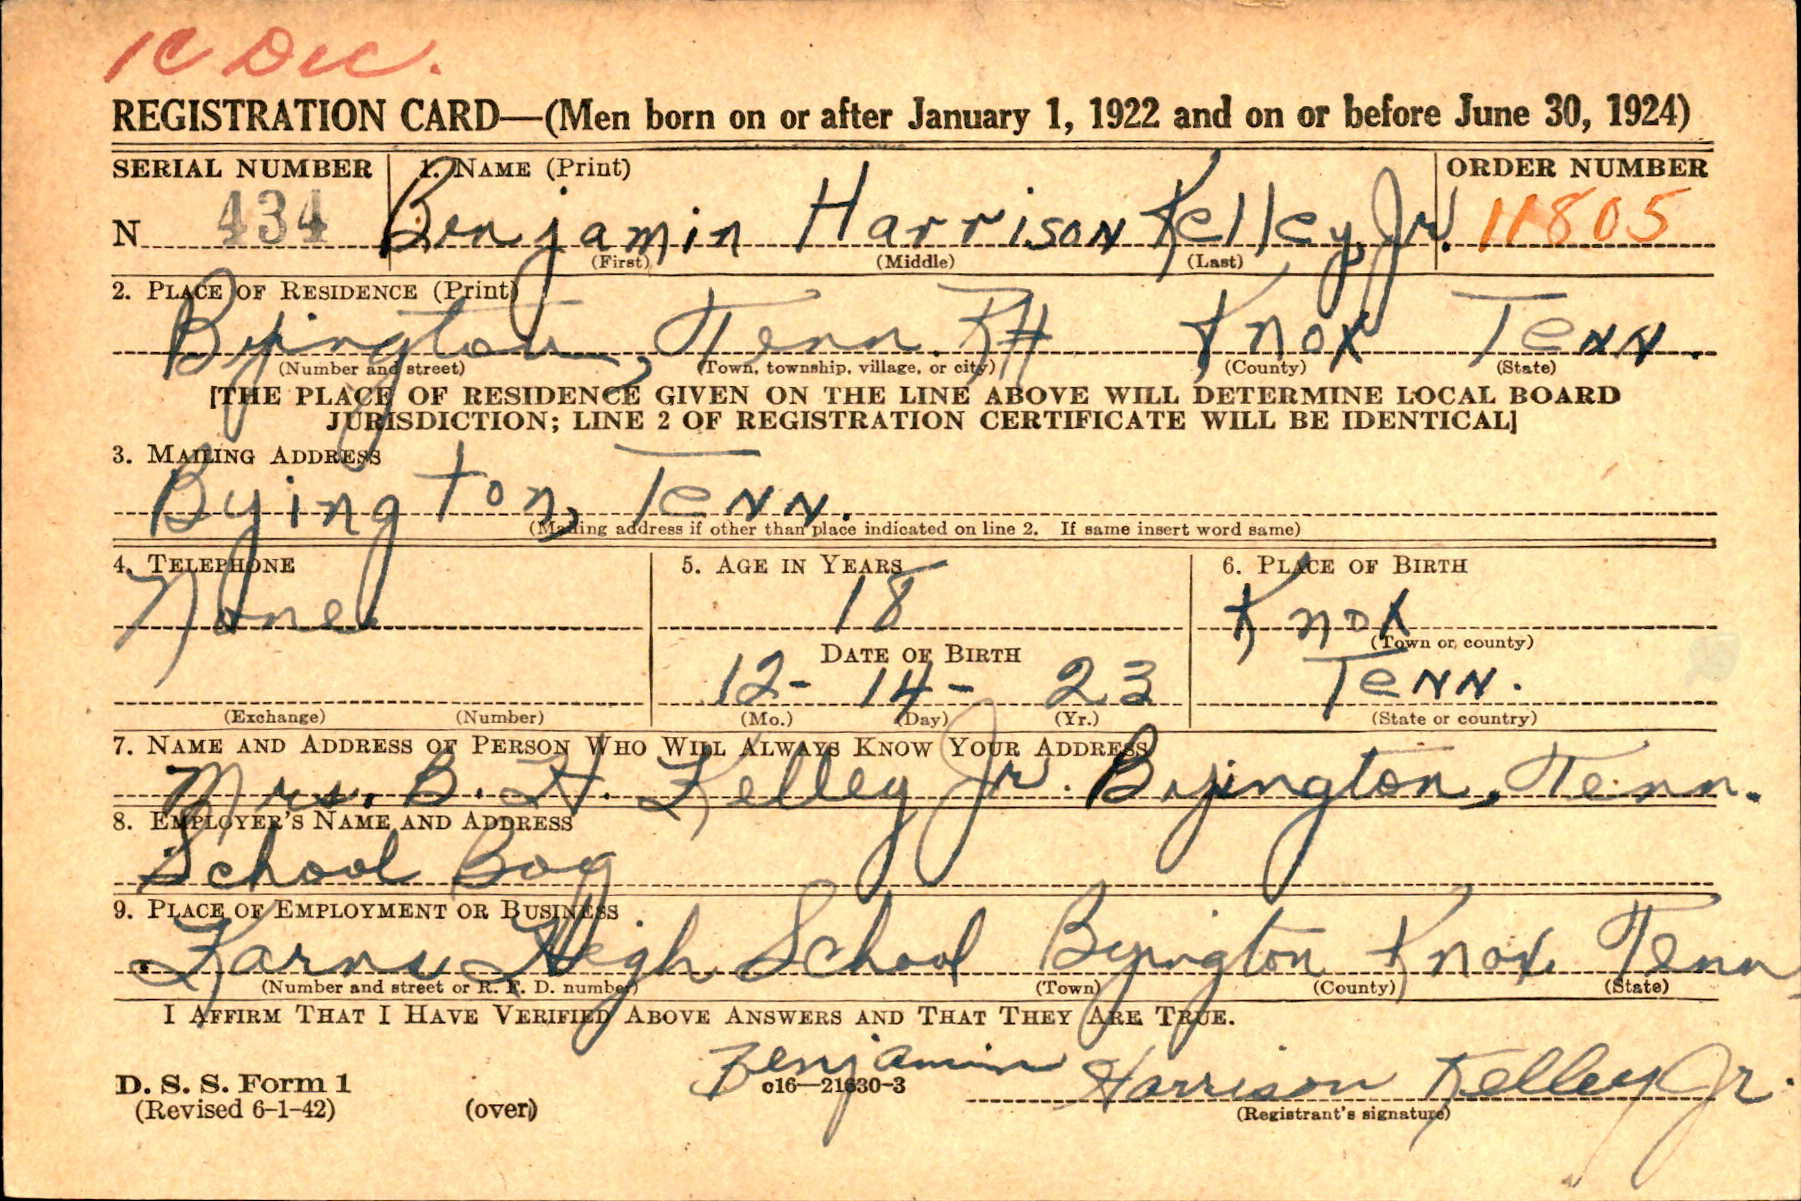 1C Dec.
REGISTRATION CARD—(Men born on or after January 1, 1922 and on or before June 30, 1924)
SERIAL NUMBER 1. NAME (Print) ORDER NUMBER
N 434 Benjamin Harrison Kelley, Jr. 11805
(First) (Middle) (Last)
2. PLACE OF RESIDENCE (Print)
Byington, Tenn. Knox Tenn.
(Number and street) (Town, township, village, or city) (County) (State)
[THE PLACE OF RESIDENCE GIVEN ON THE LINE ABOVE WILL DETERMINE LOCAL BOARD
JURISDICTION; LINE 2 OF REGISTRATION CERTIFICATE WILL BE IDENTICAL]
3. MAILING ADDRESS
Byington, Tenn.
(Mailing address if other than place indicated on line 2. If same insert word same)
4. TELEPHONE 5. AGE IN YEARS 6. PLACE OF BIRTH
None 18 Knox
(Town or county)
DATE OF BIRTH
12-14-23 Tenn.
(Exchange) (Number) (Mo.) (Day) (Yr.) (State or country)
7. NAME AND ADDRESS OF PERSON WHO WILL ALWAYS KNOW YOUR ADDRESS
Mrs. B. H. Kelley Jr. Byington, Tenn.
8. EMPLOYER'S NAME AND ADDRESS
School Boy
9. PLACE OF EMPLOYMENT OR BUSINESS
Karns High School Byington Knox Tenn
(Number and street or R. F. D. number) (Town) (County) (State)
I AFFIRM THAT I HAVE VERIFIED ABOVE ANSWERS AND THAT THEY ARE TRUE.
Benjamin Harrison Kelley Jr.
D. S. S. Form 1 c16—21630-3
(Revised 6-1-42) (over) (Registrant's signature)